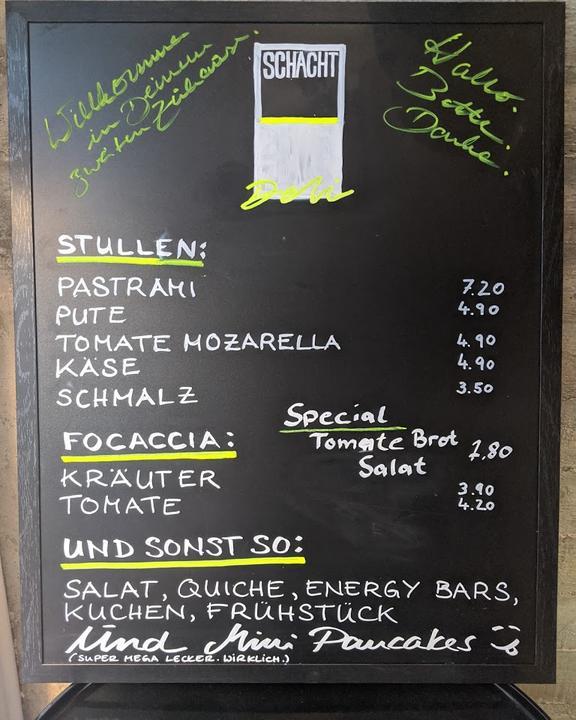 Willkommen
in Deinem
zweiten Zuhause.
SCHACHT
Deli
Hallo.
Bitte.
Danke.
STULLEN:
PASTRAMI 7.20
PUTE 4.90
TOMATE MOZARELLA 4.90
KÄSE 4.90
SCHMALZ 3.50
Special
Tomate Brot
Salat 7.80
FOCACCIA:
KRÄUTER 3.90
TOMATE 4.20
UND SONST SO:
SALAT, QUICHE, ENERGY BARS,
KUCHEN, FRÜHSTÜCK
Und Mini Pancakes
(SUPER MEGA LECKER. WIRKLICH.)